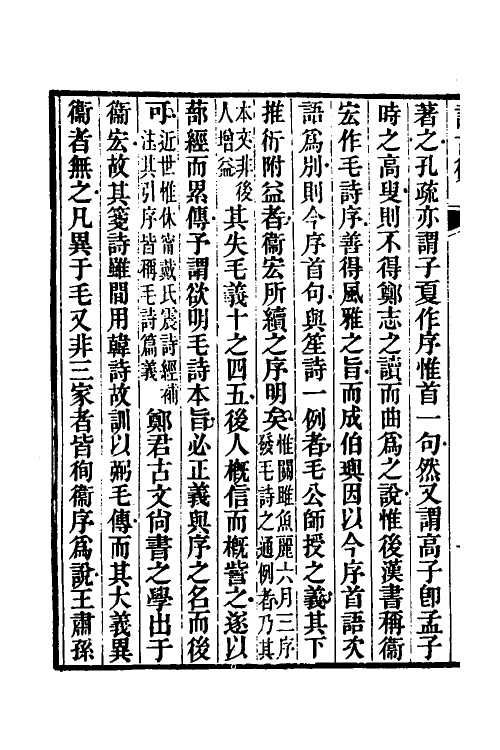 著之孔疏亦謂子夏作序惟首一句然又謂高子卽孟子
時之高叟則不得鄭志之讀而曲爲之說惟後漢書稱衞
宏作毛詩序善得風雅之旨而成伯璵因以今序首語次
語爲別則今序首句與笙詩一例者毛公師授之義其下
推衍附益者衞宏所續之序明矣惟關雎魚麗六月三序發毛詩之通例者乃其
本文非後人增益其失毛義十之四五後人概信而概訾之遂以
蔀經而累傳予謂欲明毛詩本旨必正義與序之名而後
可近世惟休甯戴氏震詩經補注其引序皆稱毛詩篇義鄭君古文尙書之學出于
衞宏故其箋詩雖間用韓詩故訓以弼毛傳而其大義異
衞者無之凡異于毛又非三家者皆徇衞序爲說王肅孫